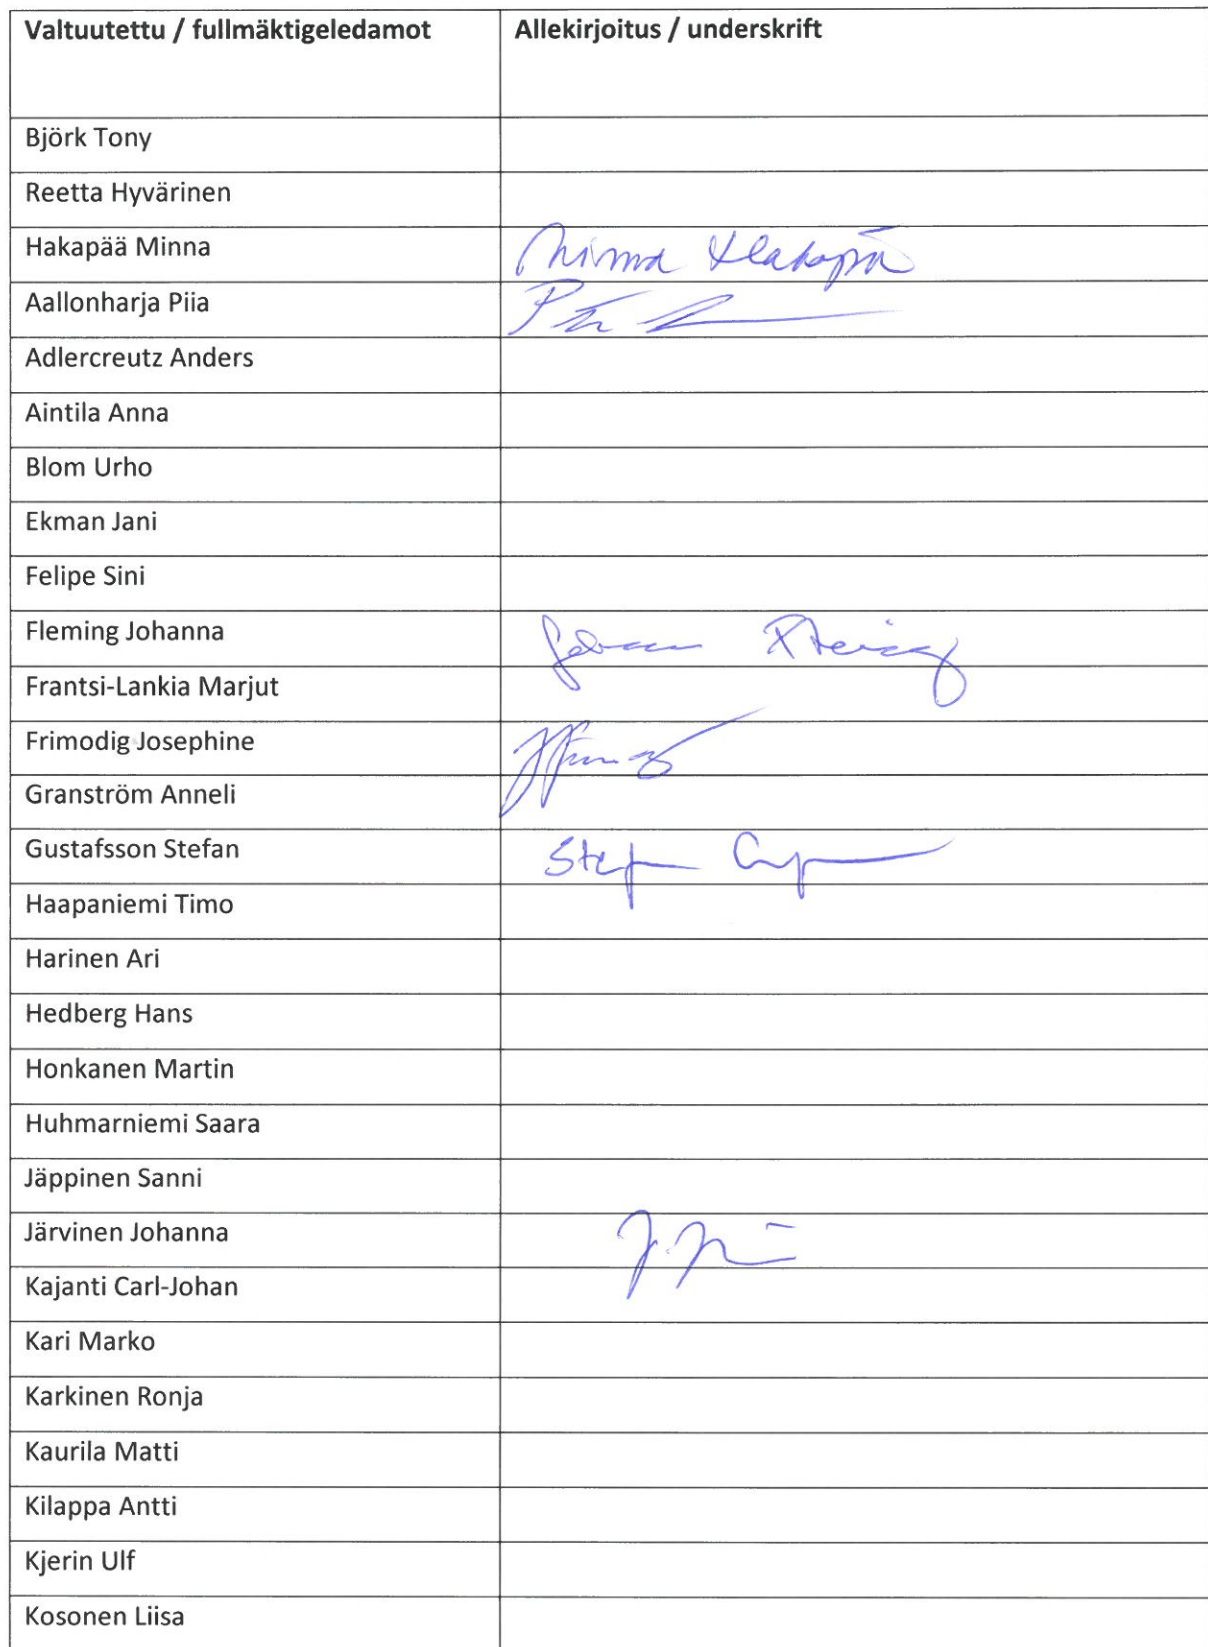 Valtuutettu / fullmäktigeledamot Allekirjoitus / underskrift
Björk Tony
Reetta Hyvärinen
Hakapää Minna Minna Hakapää
Aallonharja Piia
Adlercreutz Anders
Aintila Anna
Blom Urho
Ekman Jani
Felipe Sini
Fleming Johanna Johanna Fleming
Frantsi-Lankia Marjut
Frimodig Josephine
Granström Anneli
Gustafsson Stefan Stefan
Haapaniemi Timo
Harinen Ari
Hedberg Hans
Honkanen Martin
Huhmarniemi Saara
Jäppinen Sanni
Järvinen Johanna
Kajanti Carl-Johan
Kari Marko
Karkinen Ronja
Kaurila Matti
Kilappa Antti
Kjerin Ulf
Kosonen Liisa